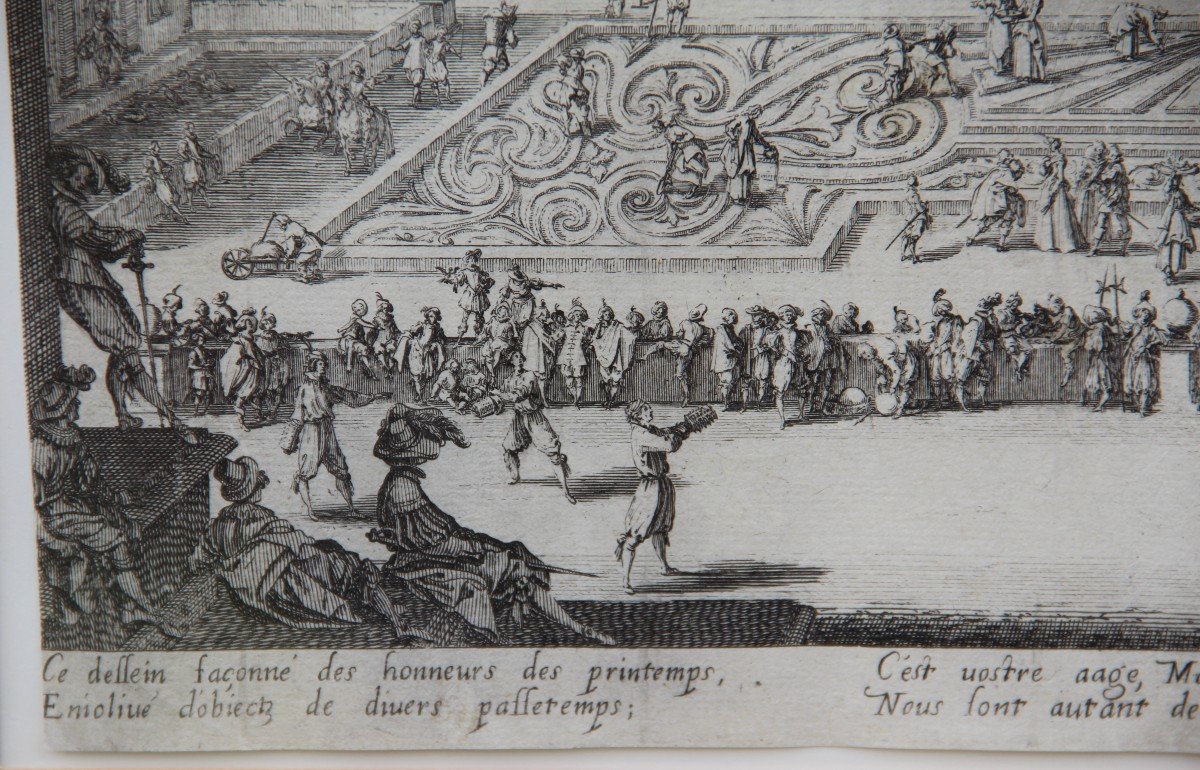 Ce deſſein façonné des honneurs des printemps,
Enioliué d'obiectz de diuers paſſetemps;
C'est uostre aage,
Nous ſont autant de